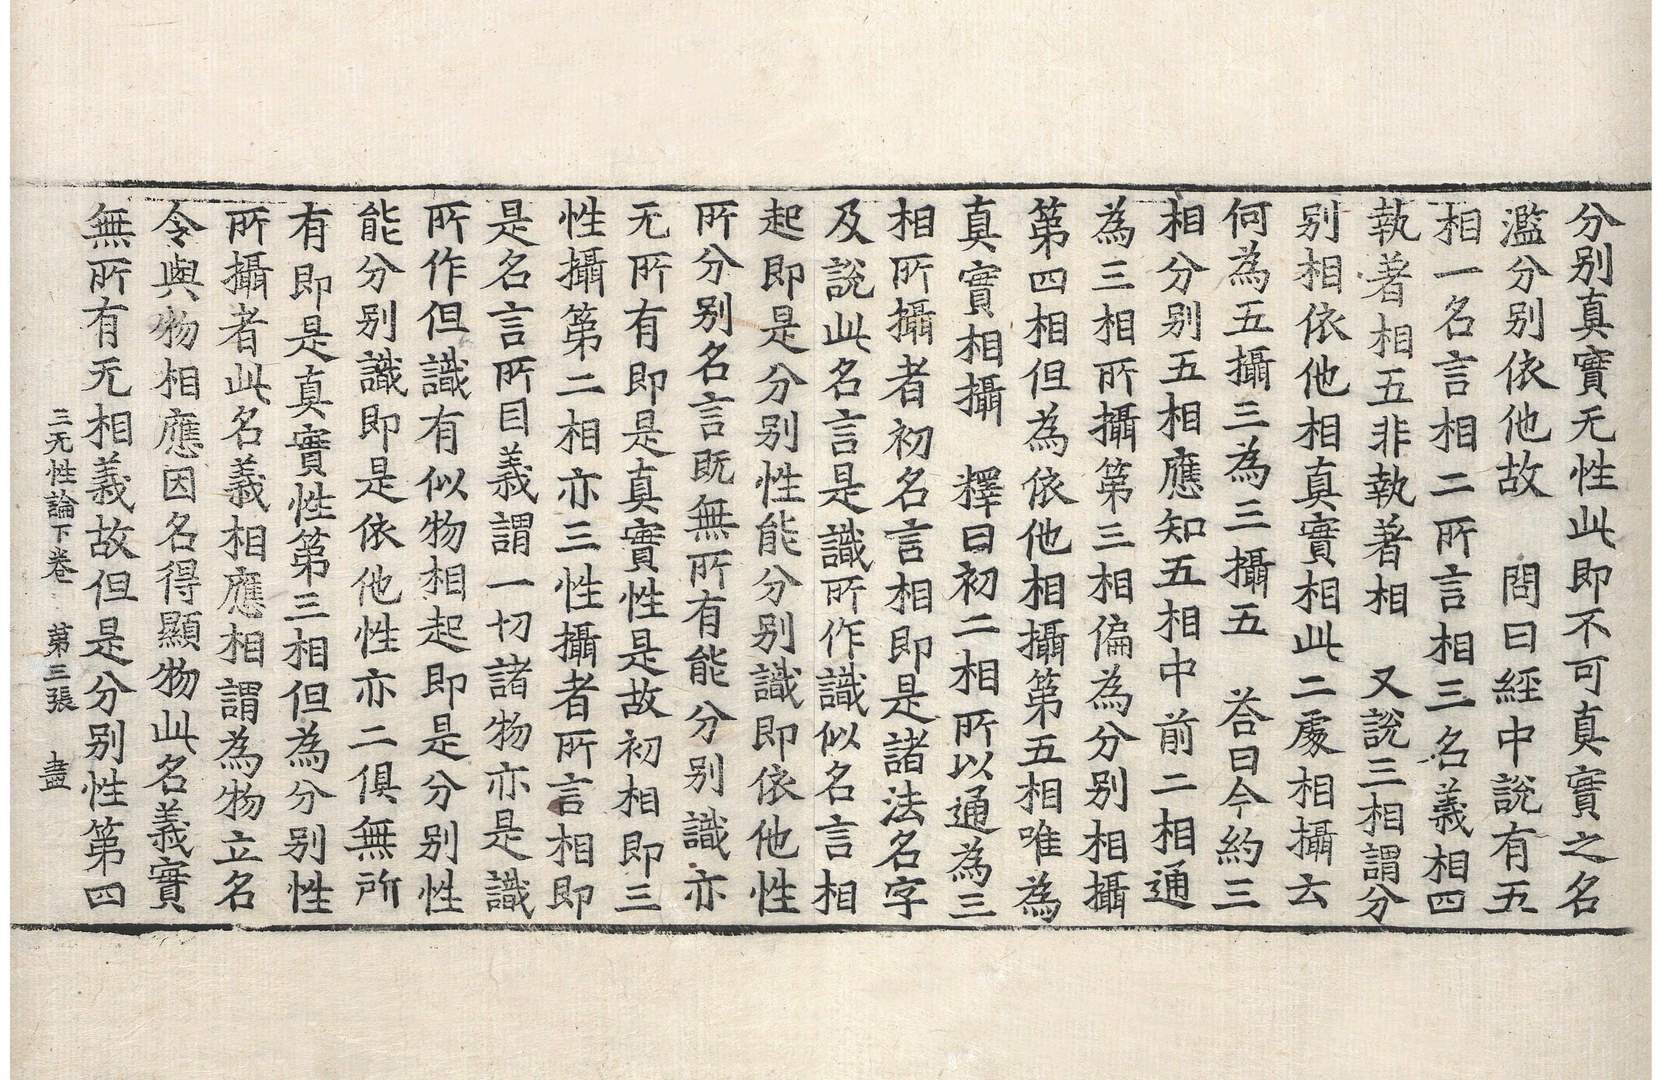 分別真實无性此即不可真實之名
濫分別依他故　問曰經中說有五
相一名言相二所言相三名義相四
執著相五非執著相　又說三相謂分
別相依他相真實相此二處相攝云
何為五攝三為三攝五　荅曰今約三
相分別五相應知五相中前二相通
為三相所攝第三相偏為分別相攝
第四相但為依他相攝第五相唯為
真實相攝　釋曰初二相所以通為三
相所攝者初名言相即是諸法名字
及說此名言是識所作識似名言相
起即是分別性能分別識即依他性
所分別名言既無所有能分別識亦
无所有即是真實性是故初相即三
性攝第二相亦三性攝者所言相即
是名言所目義謂一切諸物亦是識
所作但識有似物相起即是分別性
能分別識即是依他性亦二俱無所
有即是真實性第三相但為分別性
所攝者此名義相應相謂為物立名
令與物相應因名得顯物此名義實
無所有无相義故但是分別性第四
三无性論下卷　第三張　盡